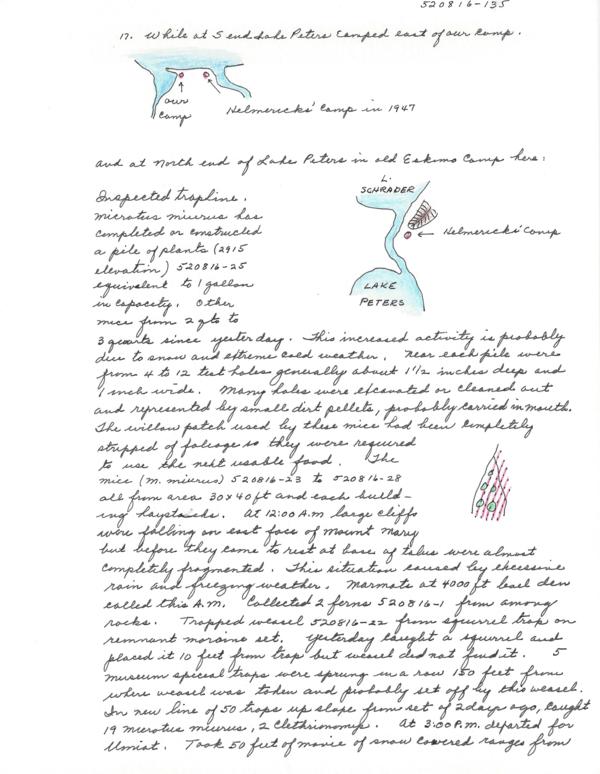 520816-135
17. While at S end Lake Peters camped east of our camp.
our
camp
Helmericks' Camp in 1947
and at North end of Lake Peters in old Eskimo Camp here:
L.
SCHRADER
Helmericks' Camp
LAKE
PETERS
Inspected trapline.
Microtus miurus has
completed or constructed
a pile of plants (2915
elevation) 520816-25
equivalent to 1 gallon
in capacity. Other
mice from 2 qts to
3 quarts since yesterday. This increased activity is probably
due to snow and extreme cold weather. Near each pile were
from 4 to 12 test holes generally about 1 1/2 inches deep and
1 inch wide. Many holes were excavated or cleaned out
and represented by small dirt pellets, probably carried in mouth.
The willow patch used by these mice had been completely
stripped of foliage so they were required
to use the next usable food. The
mice (M. miurus) 520816-23 to 520816-28
all from area 30x40 ft and each build-
ing haystacks. At 12:00 A.M large cliffs
were falling on east face of Mount Mary
but before they came to rest at base of talus were almost
completely fragmented. This situation caused by excessive
rain and freezing weather. Marmots at 4000 ft level den
called this A.M. Collected 2 ferns 520816-1 from among
rocks. Trapped weasel 520816-22 from squirrel trap on
remnant moraine set. Yesterday caught a squirrel and
placed it 10 feet from trap but weasel did not find it. 5
museum special traps were sprung in a row 150 feet from
where weasel was taken and probably set off by this weasel.
In new line of 50 traps up slope from set of 2 days ago, caught
19 microtus miurus, 2 Clethrionomys. At 3:00 P.M. departed for
Umiat. Took 50 feet of movie of snow covered ranges from